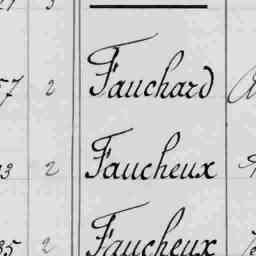 57 2 Fauchard
93 2 Faucheux
35 2 Faucheux